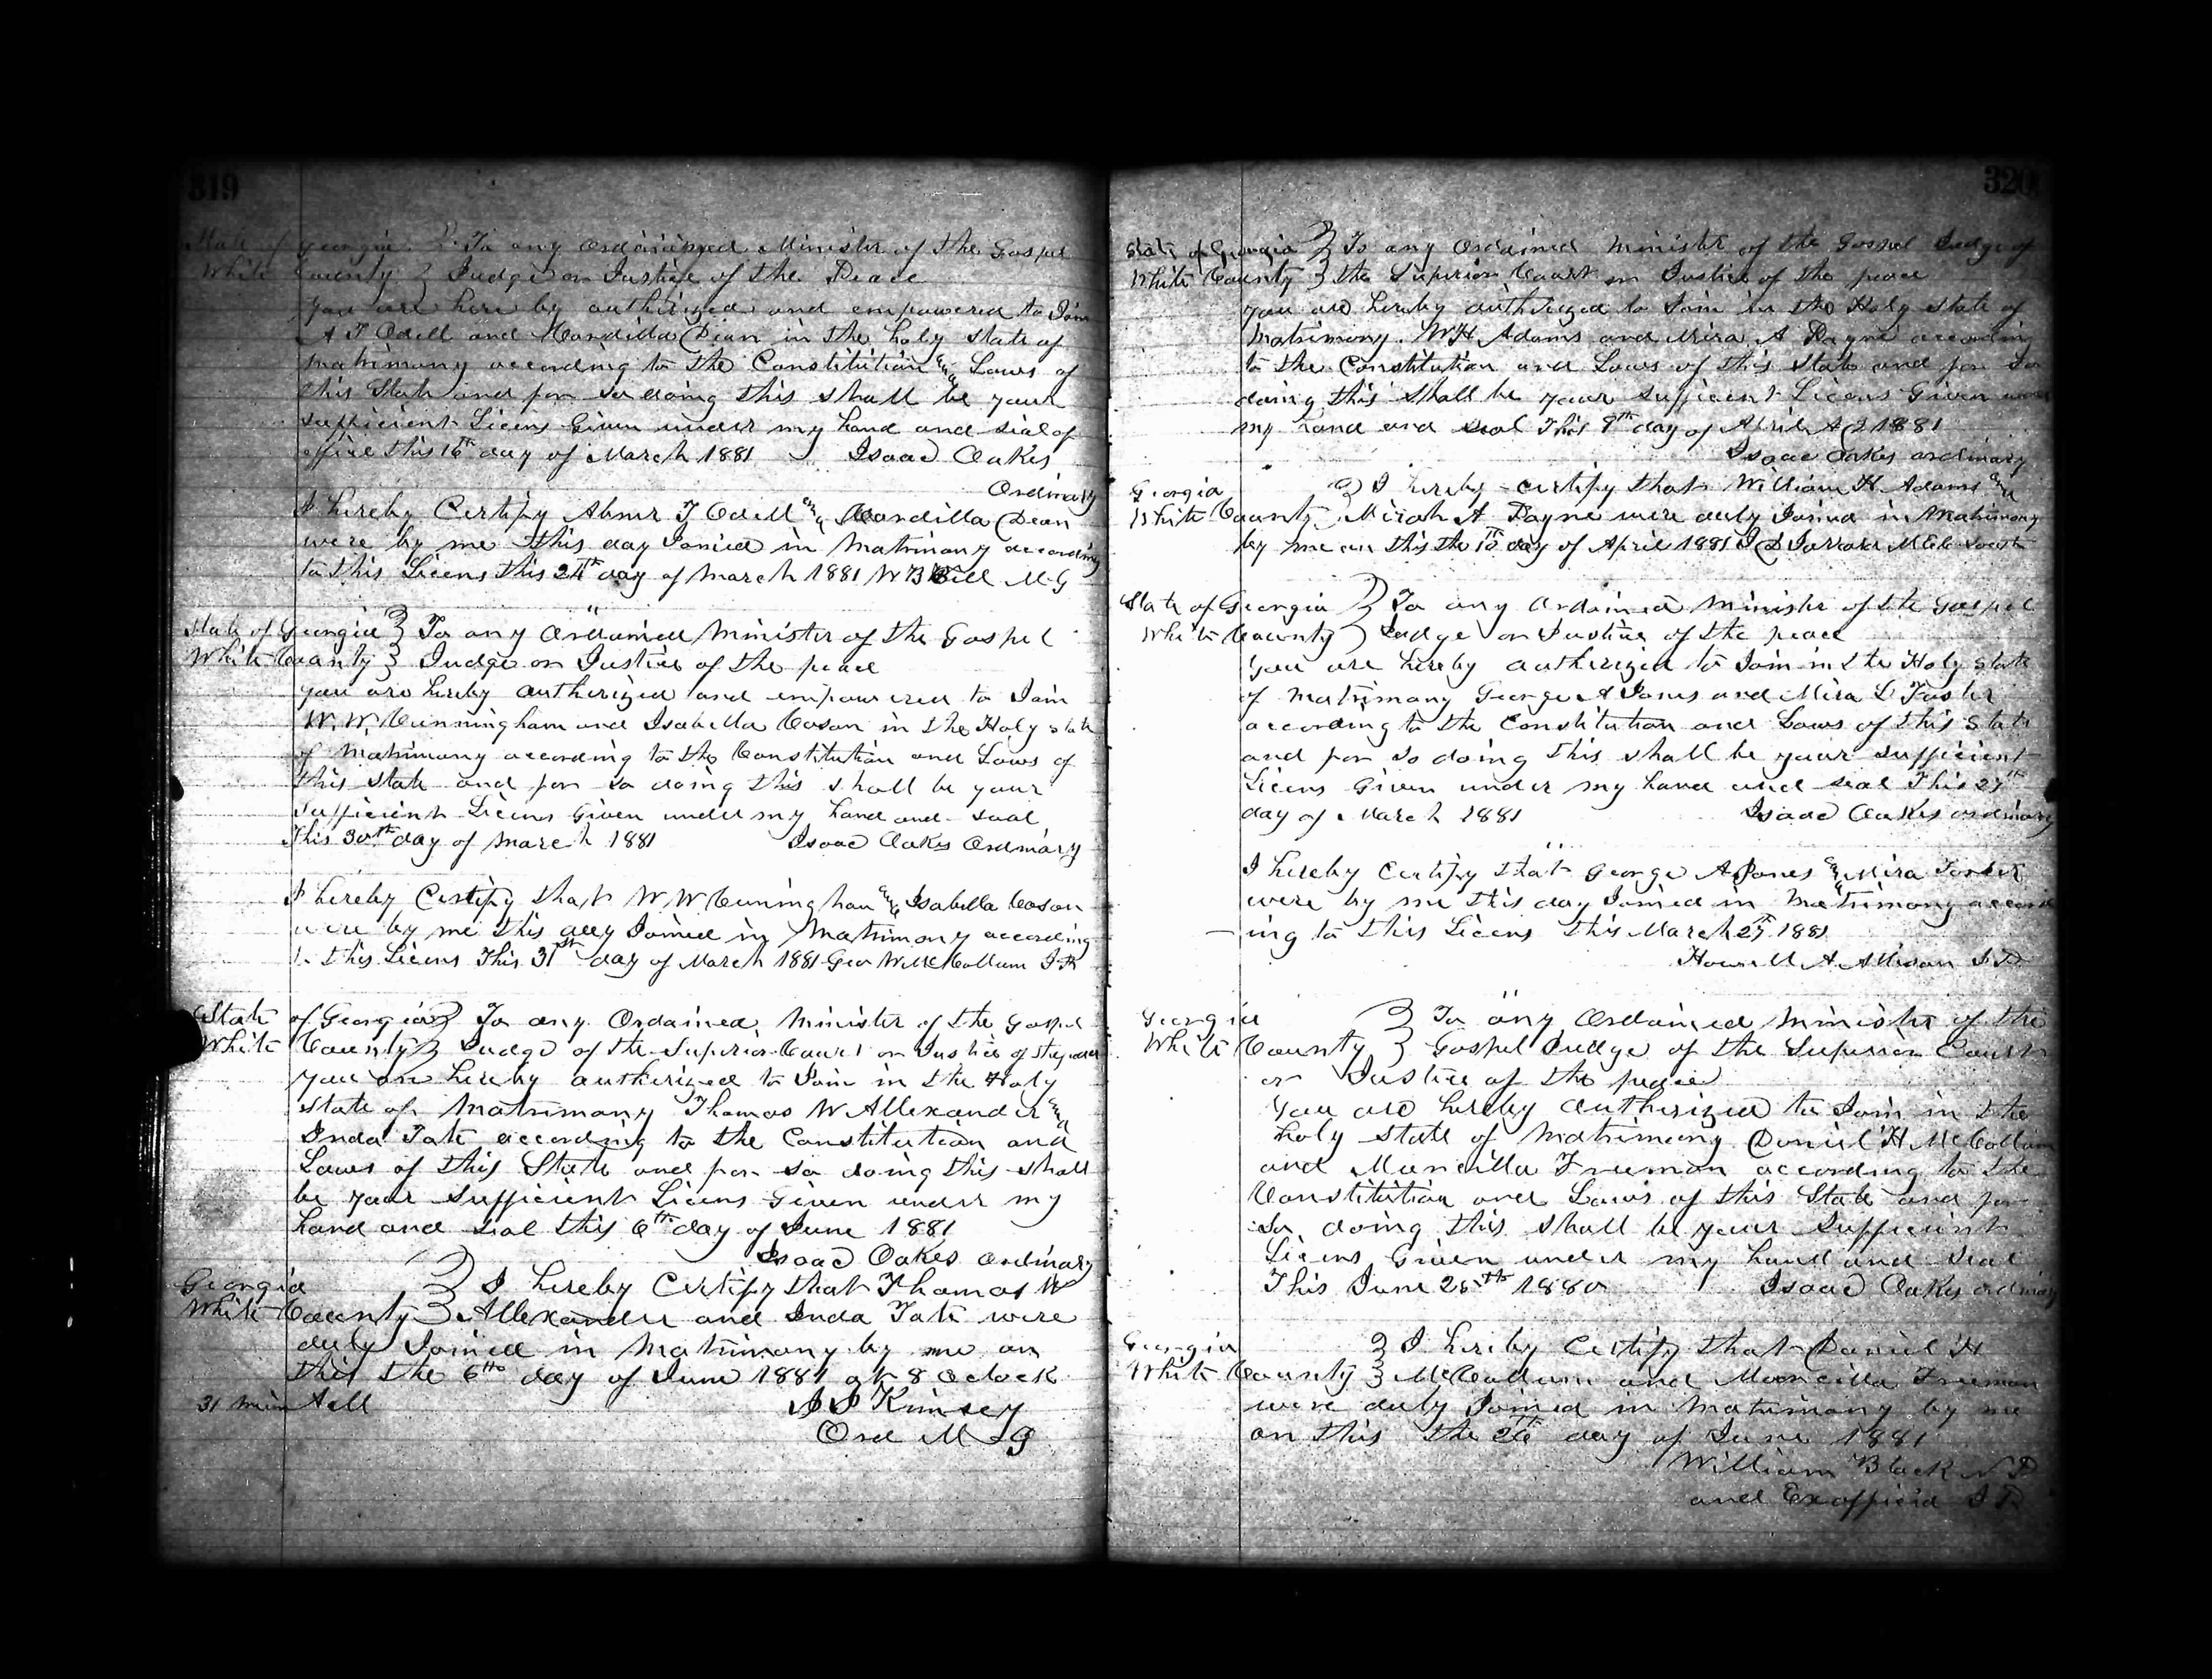 319
State of Georgia } To any Ordained Minister of the Gospel
White County } Judge or Justice of the Peace
you are here by authorized and empowered to Join
A T Odell and Cordilla Dean in the holy state of
matrimony according to the Constitution and Laws of
this State and for so doing this shall be your
sufficient Licens Given under my hand and seal of
office this 16th day of March 1881 Isaac Oakes
Ordinary
I hereby Certify Abner T Odell and Cordilla Dean
were by me this day Joined in Matrimony according
to this Licens this 24th day of March 1881 W B Bell M.G
State of Georgia } To any Ordained Minister of the Gospel
White County } Judge or Justice of the peace
you are hereby authorized and empowered to Join
W. W. Cunningham and Isabella Cason in the Holy state
of Matrimony according to the Constitution and Laws of
this state and for so doing this shall be your
sufficient Licens Given under my hand and seal
This 30th day of March 1881 Isaac Oakes Ordinary
I hereby Certify that W. W Cuningham and Isabella Cason
were by me this day Joined in Matrimony according
to this Licens This 31st day of March 1881 Geo W McCollum J.P.
State of Georgia } To any Ordained Minister of the Gospel
White County } Judge of the Superior Court or Justice of the peace
you are hereby authorized to Join in the Holy
state of Matrimony Thomas W Allexander and
Inda Tate according to the Constitution and
Laws of this State and for so doing this shall
be your sufficient Licens Given under my
hand and seal this 6th day of June 1881
Isaac Oakes Ordinary
Georgia } I hereby Certify that Thomas W
White County } Allexander and Inda Tate were
duly Joined in Matrimony by me on
this the 6th day of June 1881 at 8 Oclock
31 min
J J Kimsey
Ord M G
320
State of Georgia } To any Ordained Minister of the Gospel Judge of
White County } the Superior Court or Justice of the peace
you are hereby authorized to Join in the Holy state of
Matrimony W H Adams and Mira A Payne according
to the Constitution and Laws of this State and for so
doing this shall be your sufficient Licens Given under
my hand and seal This 9th day of April A D 1881
Isaac Oakes ordinary
Georgia } I hereby certify that William H. Adams and
White County } Mirah A Payne were duly Joined in Matrimony
by me on this the 10th day of April 1881
State of Georgia } To any Ordained Minister of the Gospel
White County } Judge or Justice of the peace
you are hereby authorized to Join in the Holy state
of Matrimony George A Jones and Mira L Foster
according to the Constitution and Laws of this State
and for so doing this shall be your sufficient
Licens Given under my hand and seal This 27th
day of March 1881 Isaac Oakes ordinary
I hereby Certify that George A Jones and Mira Foster
were by me this day Joined in Matrimony accord
ing to this Licens this March 27th 1881
Howell A Allison J.P.
Georgia } To any Ordained Minister of the
White County } Gospel Judge of the Superior Court
or Justice of the peace
you are hereby authorized to Join in the
holy state of Matrimony Daniel H McCollum
and Muncilla Freeman according to the
Constitution and Laws of this State and for
so doing this shall be your sufficient
Licens Given under my hand and seal
This June 25th 1880 Isaac Oakes ordinary
Georgia } I hereby Certify that Daniel H
White County } McCollum and Muncilla Freeman
were duly Joined in Matrimony by me
on this the 26th day of June 1881
William Black N P
and Exofficio J P